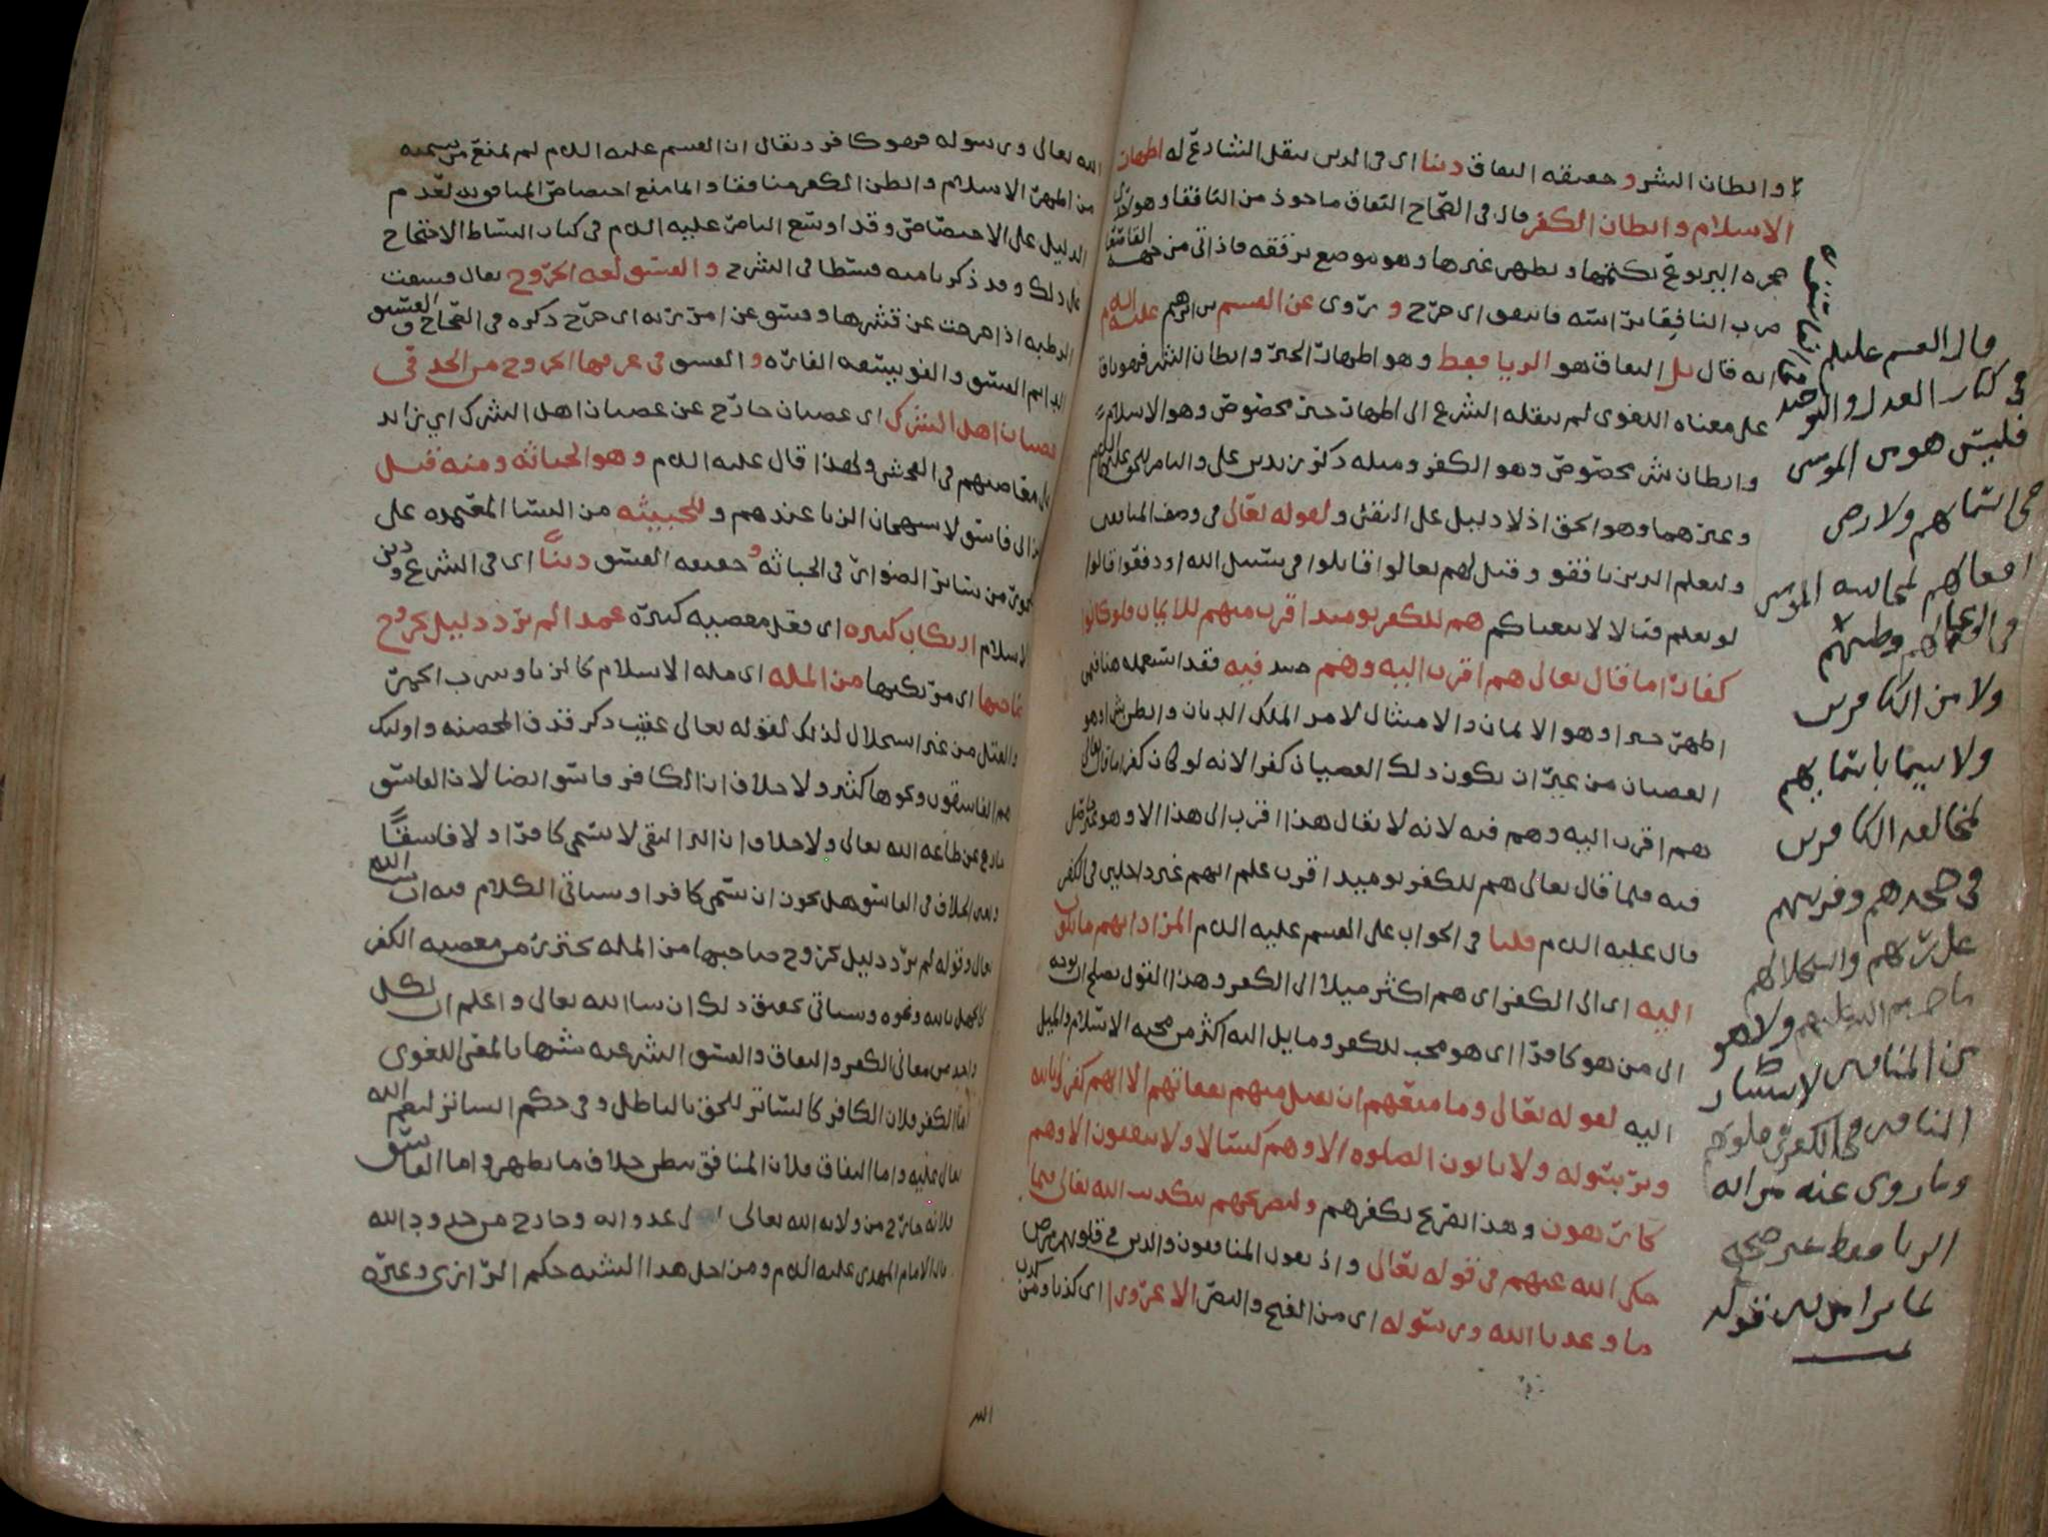 وابطان الشر وحقيقه النفاق دينا اي في الدين بنقل الشارع له اظهار
الاسلام وابطان الكفر قال في الصحاح النفاق ماخوذ من النافقا وهو
جحره اليربوع يكتمها ويظهر غيرها وهو موضع يرققه فاذا اتي من جهه القاصعا
ضرب النافقا براسه فانتفق اي خرج وروى عن القسم بن ابرهيم عليه السلام
انه قال بل النفاق هو الريا فقط وهو اظهار الخير وابطان الشر فهو باق
على معناه اللغوي لم ينقله الشرع الى اظهار خير مخصوص وهو الاسلام
وابطان شر مخصوص وهو الكفر ومثله ذكر زيد بن علي والناصر للحق عليهم السلام
وغيرهما وهو الحق اذ لا دليل على النقل ولقوله تعالى في وصف المنافقين
وليعلم الذين نافقو وقيل لهم تعالوا قاتلوا في سبيل الله او ادفعوا قالوا
لو نعلم قتالا لاتبعناكم هم للكفر يومئذ اقرب منهم للايمان ولو كانوا
كفارا ما قال تعالى هم اقرب اليه وهم حينئذ فيه فقد
اظهر خيرا وهو الايمان والامتثال لامر الملك الديان وابطن شرا وهو
العصيان من غير ان يكون ذلك العصيان كفرا لانه لو كان كفرا ما قال تعالى
هم اقرب اليه وهم فيه لانه لا يقال هذا اقرب الى هذا الا وهو غير داخل
فيه فلما قال تعالى هم للكفر يوميذ اقرب علم انهم غير داخلين في الكفر
قال عليه السلام قلنا في الجواب على القسم عليه السلام المراد انهم مايلون
اليه اي الى الكفر اي هم اكثر ميلا الى الكفر وهذا القول يصلح ان يوجه
الى من هو كافرا اي هو محب للكفر ومايل اليه اكثر من محبه الاسلام والميل
اليه لقوله تعالى وما منعهم ان تقبل منهم نفقاتهم الا انهم كفروا بالله
وبرسوله ولا ياتون الصلوه الا وهم كسالا ولا ينفقون الا وهم
كارهون وهذا تصريح بكفرهم ولتصريحهم بتكذيب الله تعالى فيما
حكى الله عنهم في قوله تعالى واذ يقول المنافقون والذين في قلوبهم مرض
ما وعدنا الله ورسوله اي من الفتح والنصر الا غرورا اي كذبا ومن كذب
قال القسم عليلم
في كتاب العدل والتوحيد
فليس هو من المومنين
في اسمائهم ولا رضى
افعالهم لمخالفه المومنين
في اعمالهم
ولا من الكافرين
ولا يسما باسمايهم
لمخالفه الكافرين
في جحدهم وفريتهم
على ربهم واستحلالهم
ما حرم
ولا هو
من المنافقين لاستسرار
المنافقين الكفر في قلوبهم
وما روي عنه من انه
الريا فقط غير صحيح
قوله
الله تعالى ورسوله فهو كافر ويقال ان القسم عليه السلام لم يمنع من تسميه
من اظهر الاسلام وابطن الكفر منافقا وانما منع اختصاص المنافق به لعدم
الدليل على الاختصاص وقد اوسع الناصر عليه السلام في كتاب البساط الاحتجاج
على ذلك وقد ذكرنا منه قسطا في الشرح والفسق لغه الخروج يقال فسقت
الرطبه اذا خرجت عن قشرها وفسق عن امر ربه اي خرج ذكره في الصحاح والفسيق
الدايم الفسق والفويسقه الفاره والفسق في عرفها الخروج من الحد في
عصيان اهل الشرك اي عصيان خارج عن عصيان اهل الشرك اي زايد
على معاصيهم في الفحش ولهذا قال عليه السلام وهو الخباثه ومنه قيل
للزاني فاسق لاستهجان الزنا عندهم وللخبيثه من النسا المعتمده على
من ساير الضواري في الخباثه وحقيقه الفسق دينا اي في الشرع ودين
الاسلام ارتكاب كبيره اي فعل معصيه كبيره عمدا لم يرد دليل بخروج
صاحبها اي مرتكبها من المله اي مله الاسلام كالزنا وشرب الخمر
والقتل من غير استحلال لذلك لقوله تعالى عقيب ذكر قذف المحصنه واوليك
هم الفاسقون ونحوها كثير ولا خلاف ان الكافر فاسق ايضا لان الفاسق
خارج عن طاعه الله تعالى ولا خلاف ان البر التقي لا يسمى كافرا ولا فاسقا
وبقي الخلاف في الفاسق هل يجوز ان يسمى كافرا وسياتي الكلام فيه ان شا الله
تعالى وقوله لم يرد دليل بخروج صاحبها من المله يحترز من معصيه الكفر
كالجهل بالله ونحوه وسياتي تحقيق ذلك ان شا الله تعالى واعلم ان لكل
واحد من معاني الكفر والنفاق والفسق الشرعيه شبها بالمعنى اللغوي
اما الكفر فلان الكافر كالساتر للحق بالباطل وفي حكم الساتر لنعم الله
تعالى عليه واما النفاق فلان المنافق يبطن خلاف ما يظهر واما الفاسق
فلانه خارج من ولايه الله تعالى الى عداوته وخارج من حدود الله
قال الامام المهدي عليه السلام ومن اجل هذا الشبه حكم الرازي وغيره